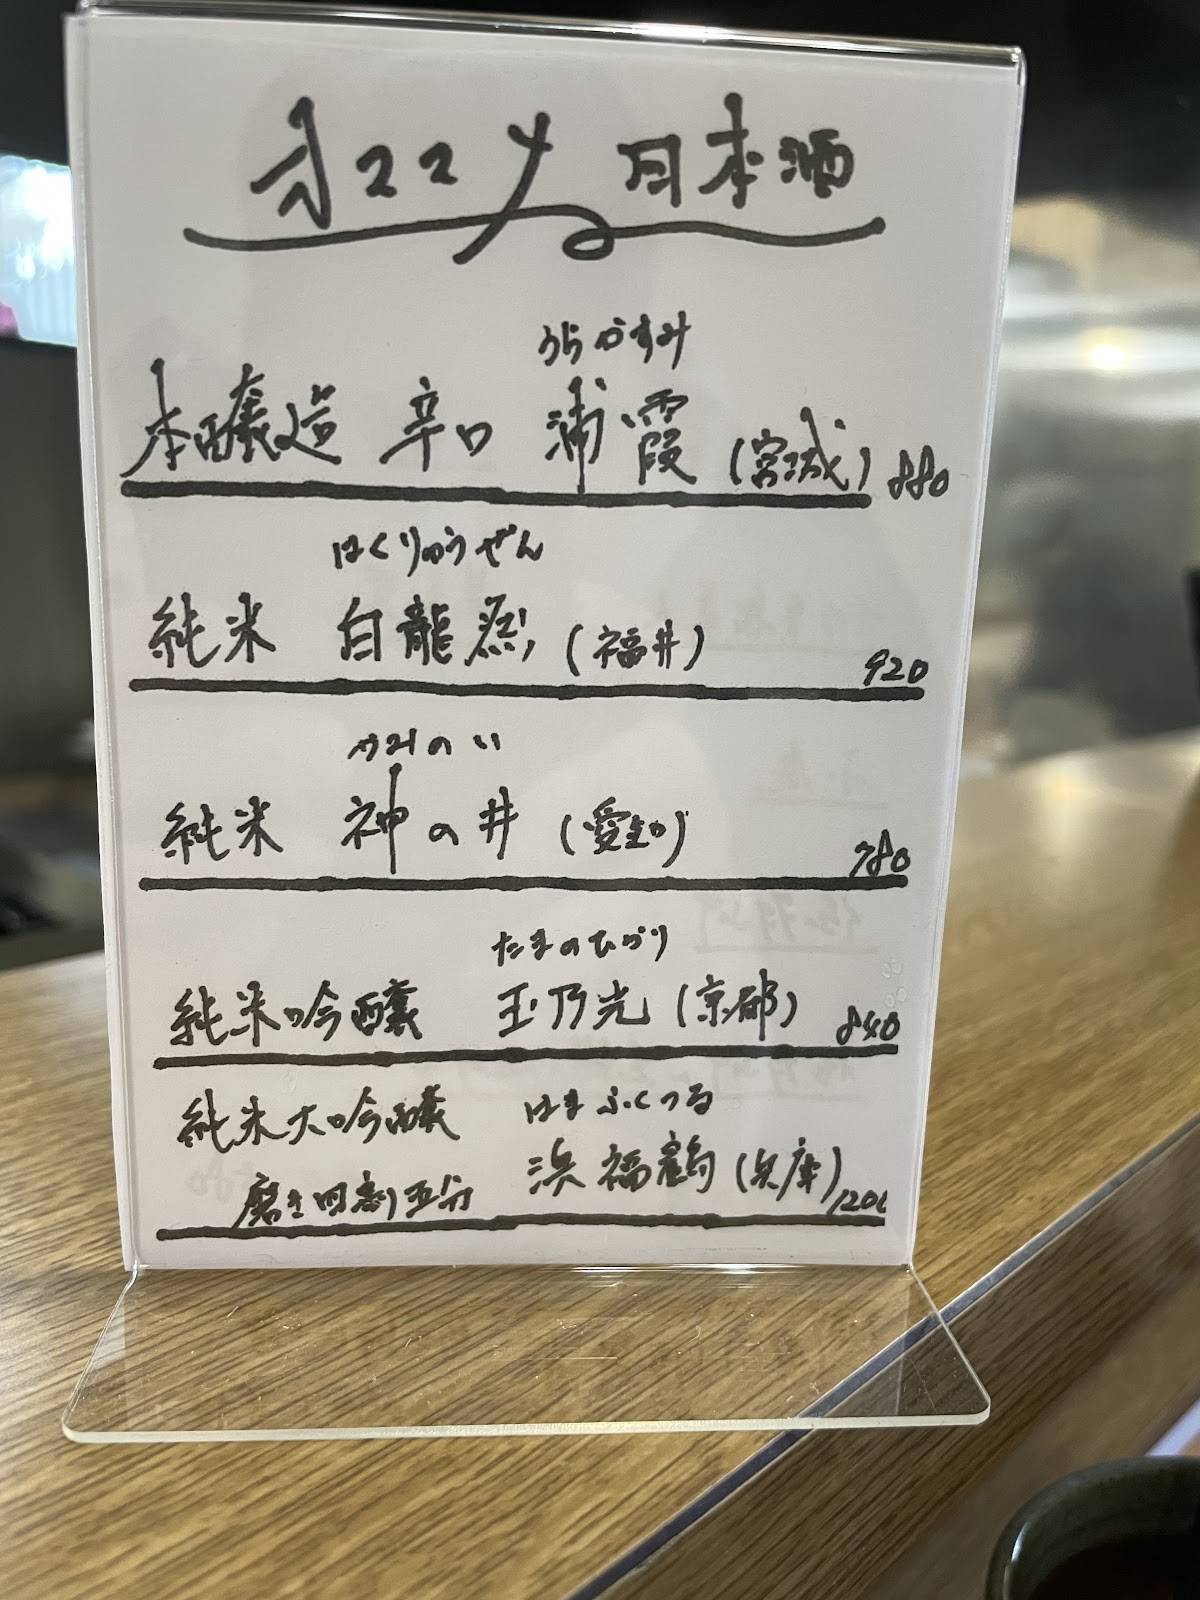 オススメ 日本酒
うらかすみ
本醸造 辛口 浦霞 (宮城) 880
はくりゅうぜん
純米 白龍然 (福井) 920
かみのい
純米 神の井 (愛知) 780
たまのひかり
純米吟醸 玉乃光 (京都) 840
純米大吟醸 はまふくつる
磨き四割五分 浜福鶴 (兵庫) 1200